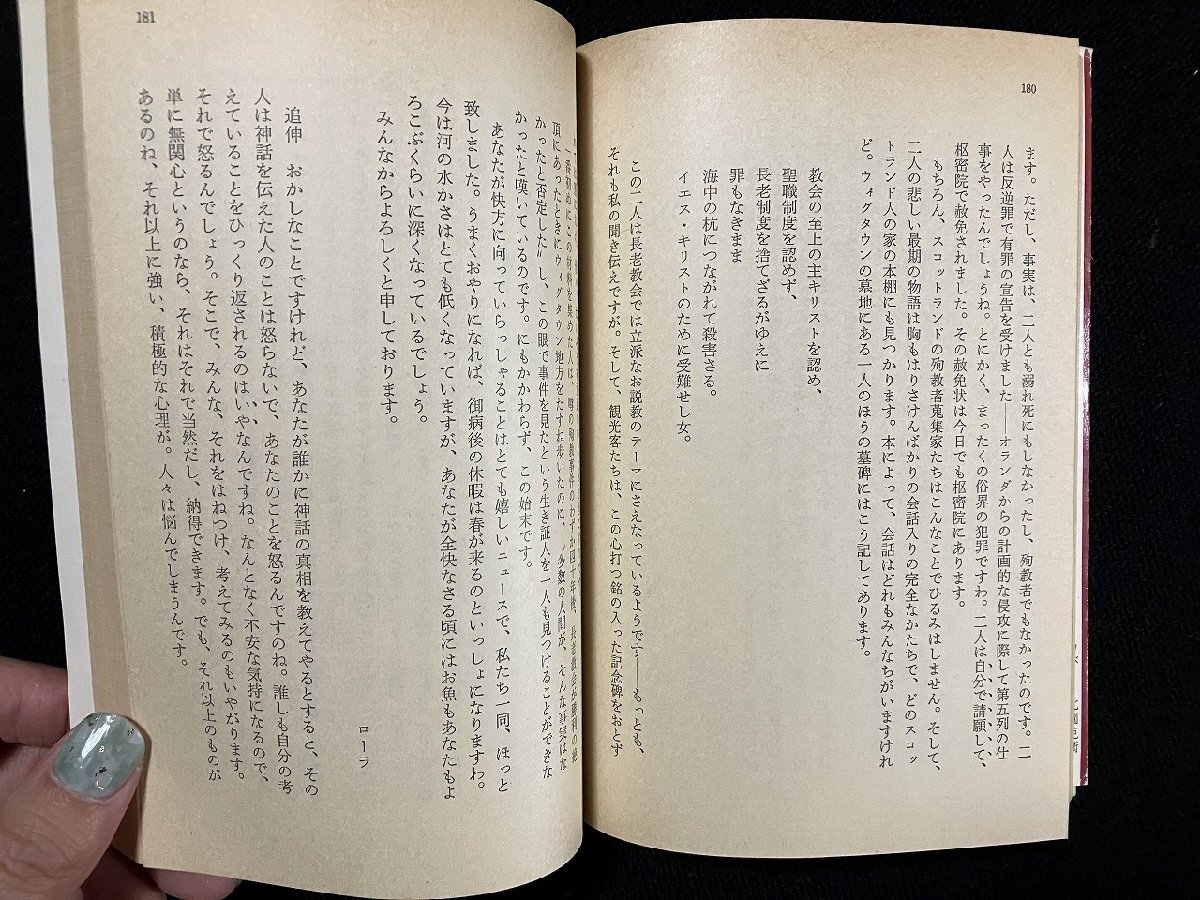 180
ます。ただし、事実は、二人とも溺れ死にもしなかったし、殉教者でもなかったのです。二
人は反逆罪で有罪の宣告を受けました――オランダからの計画的な侵攻に際して第五列の仕
事をやったんでしょうね。とにかく、まったくの俗界の犯罪ですわ。二人は自分で請願して、
枢密院で赦免されました。その赦免状は今日でも枢密院にあります。
もちろん、スコットランドの殉教者蒐集家たちはこんなことでひるみはしません。そして、
二人の悲しい最期の物語は胸もはりさけんばかりの会話入りの完全なかたちで、どのスコッ
トランド人の家の本棚にも見つかります。本によって、会話はどれもみんなちがいますけれ
ど。ウィグタウンの墓地にある一人のほうの墓碑にはこう記してあります。
教会の至上の主キリストを認め、
聖職制度を認めず、
長老制度を捨てざるがゆえに
罪もなきまま
海中の杭につながれて殺害さる。
イエス・キリストのために受難せし女。
この二人は長老教会では立派なお説教のテーマにさえなっているようです――もっとも、
それも私の聞き伝えですが。そして、観光客たちは、この心打つ銘の入った記念碑をおとず
一番初めにこの材料を集めた人は、噂の殉教事件のわずか四十年後、長老教会が勝利の絶
頂にあったときにウィグタウン地方をたずね歩いたのに、〝多数の人間が、そんな事実はな
かったと否定した〟し、この眼で事件を見たという生き証人を一人も見つけることができな
かったと嘆いているのです。にもかかわらず、この始末です。
あなたが快方に向っていらっしゃることはとても嬉しいニュースで、私たち一同、ほっと
致しました。うまくおやりになれば、御病後の休暇は春が来るのといっしょになりますわ。
今は河の水かさはとても低くなっていますが、あなたが全快なさる頃にはお魚もあなたもよ
ろこぶくらいに深くなっているでしょう。
みんなからよろしくと申しております。
ローラ
追伸　おかしなことですけれど、あなたが誰かに神話の真相を教えてやるとすると、その
人は神話を伝えた人のことは怒らないで、あなたのことを怒るんですのね。誰しも自分の考
えていることをひっくり返されるのはいやなんですね。なんとなく不安な気持になるので、
それで怒るんでしょう。そこで、みんな、それをはねつけ、考えてみるのもいやがります。
単に無関心というのなら、それはそれで当然だし、納得できます。でも、それ以上のものが
あるのね、それ以上に強い、積極的な心理が。人々は悩んでしまうんです。
181